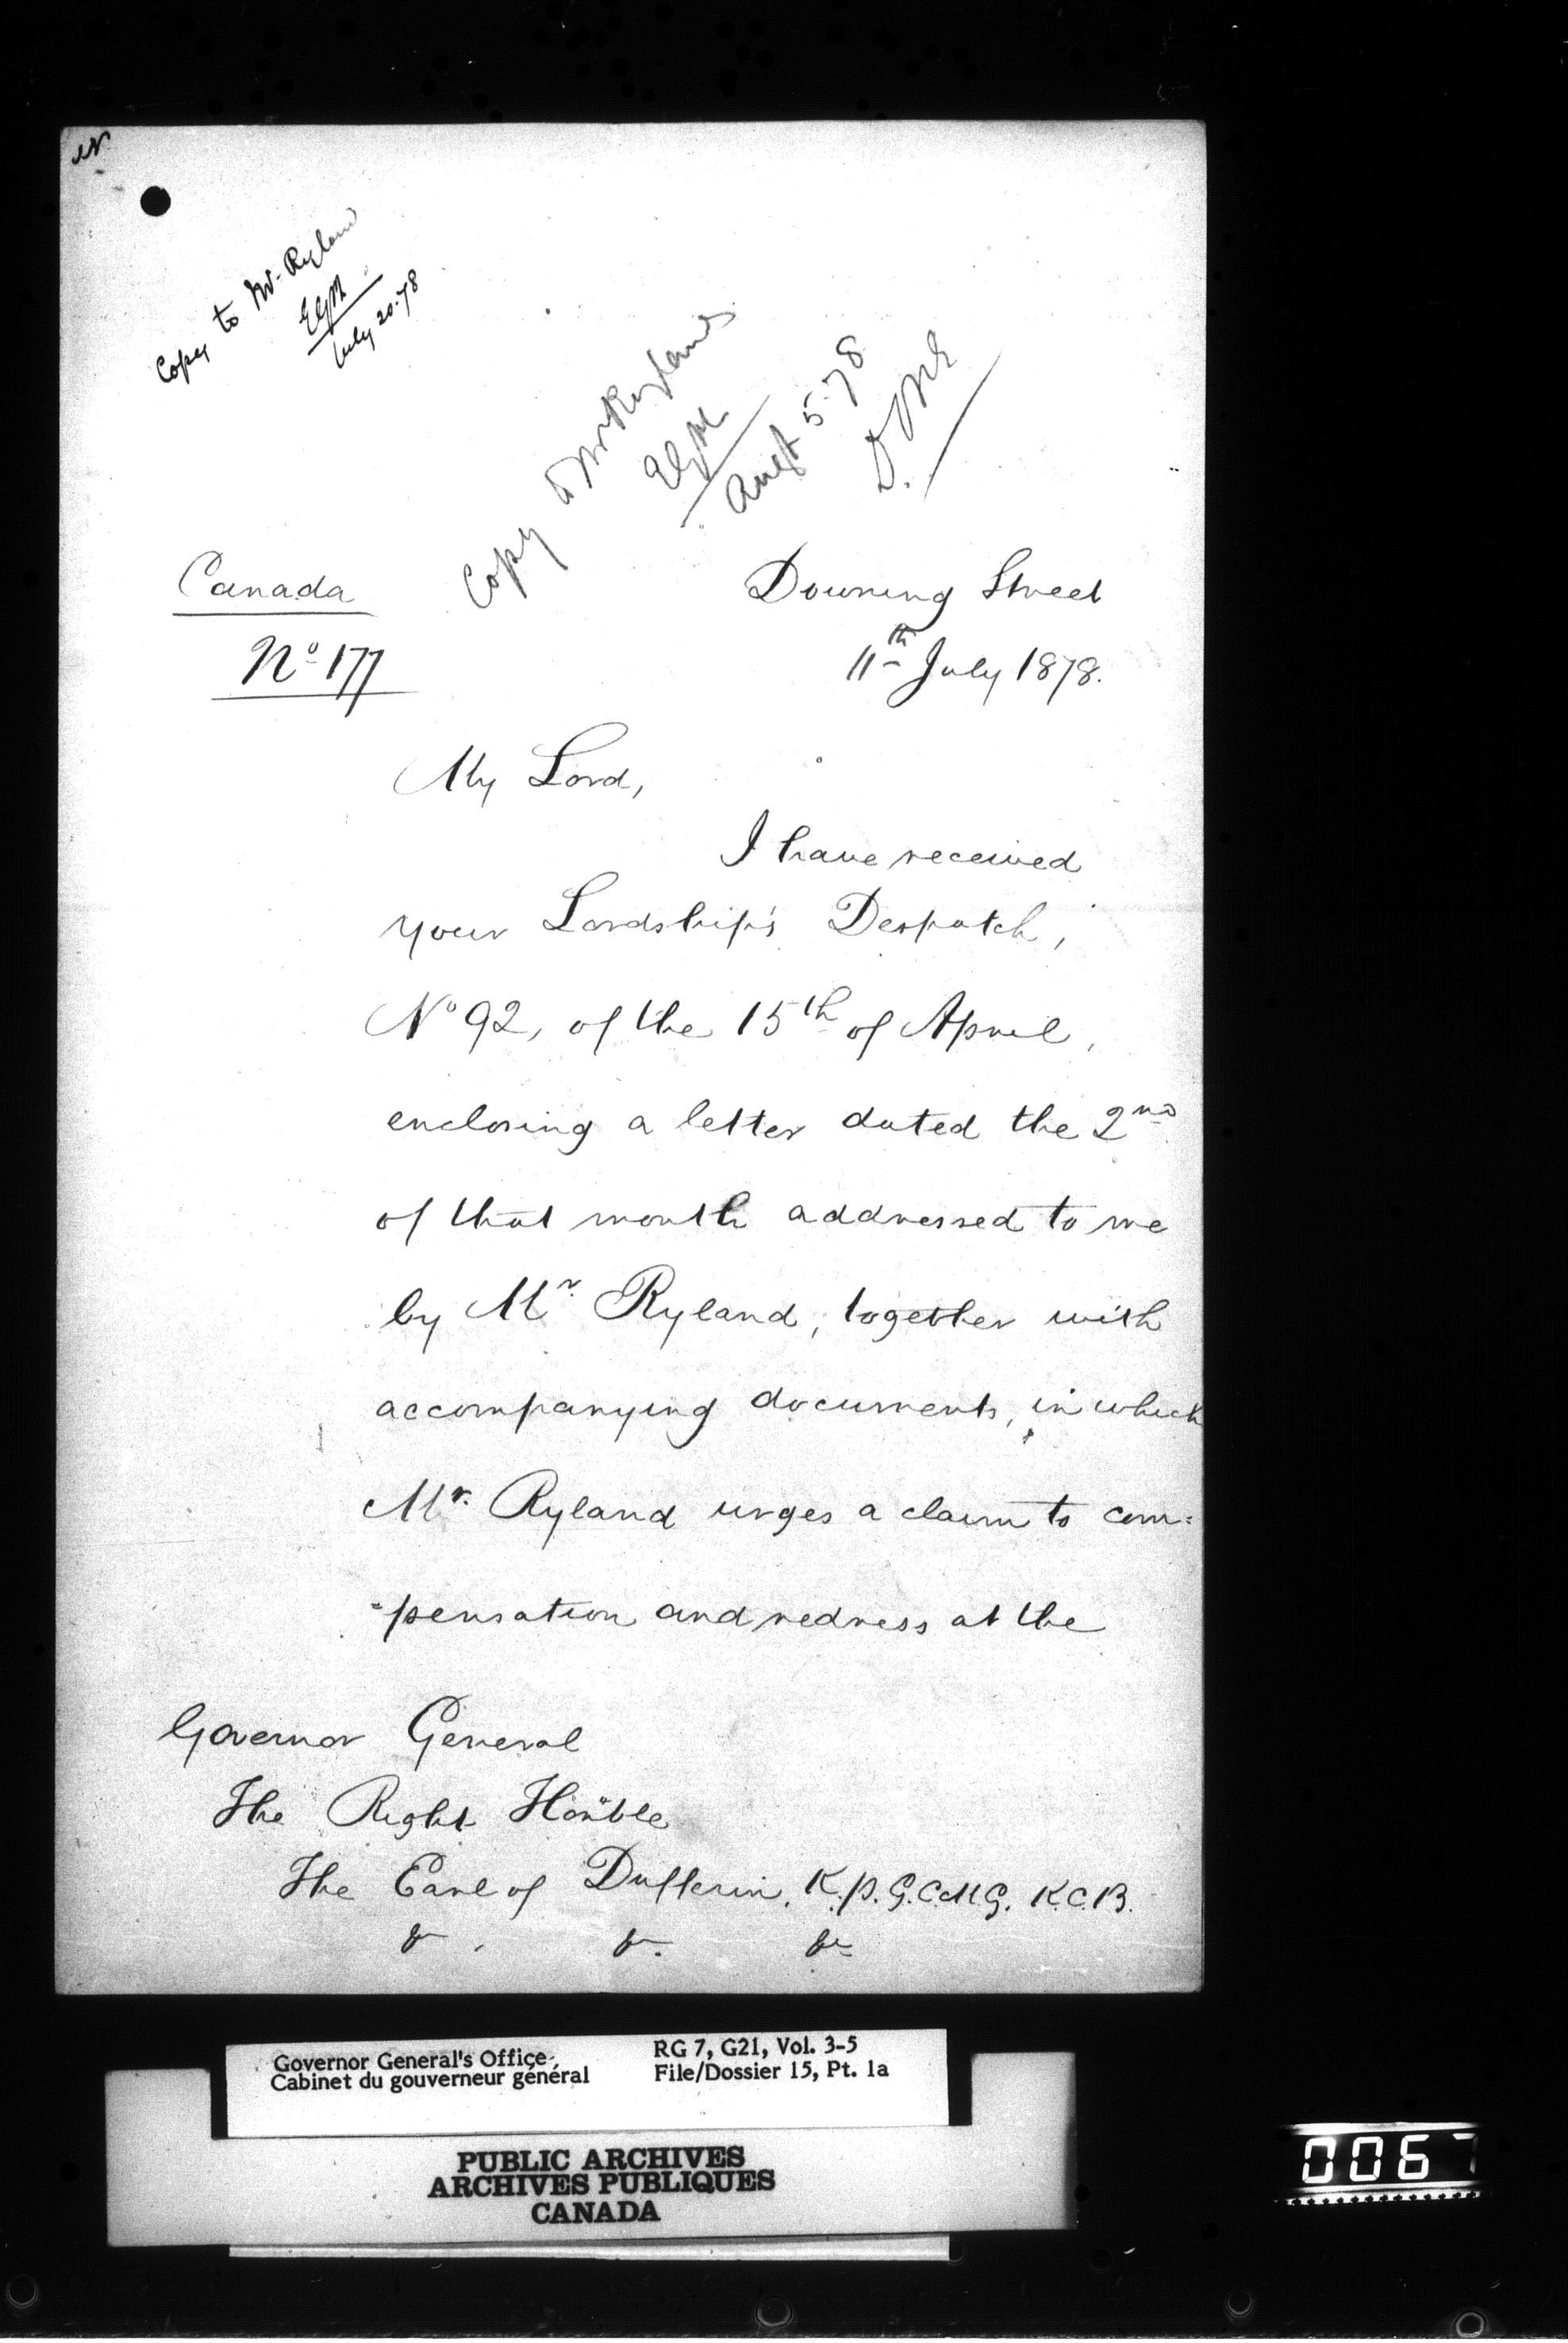 Copy to Mr. Ryland
EGM
July 20.78
Copy to Mr Ryland
EGM
Augt 5.78
Done
Canada
No 177
Downing Street
11th July 1878.
My Lord,
I have received
your Lordship's Despatch,
No 92, of the 15th of April,
enclosing a letter dated the 2nd
of that month addressed to me
by Mr. Ryland, together with
accompanying documents, in which
Mr. Ryland urges a claim to com=
=pensation and redress at the
Governor General
The Right Honble
The Earl of Dufferin, K.P. G.C.M.G. K.C.B.
&c. &c. &c
Governor General's Office
Cabinet du gouverneur général
RG 7, G21, Vol. 3-5
File/Dossier 15, Pt. 1a
PUBLIC ARCHIVES
ARCHIVES PUBLIQUES
CANADA
0067